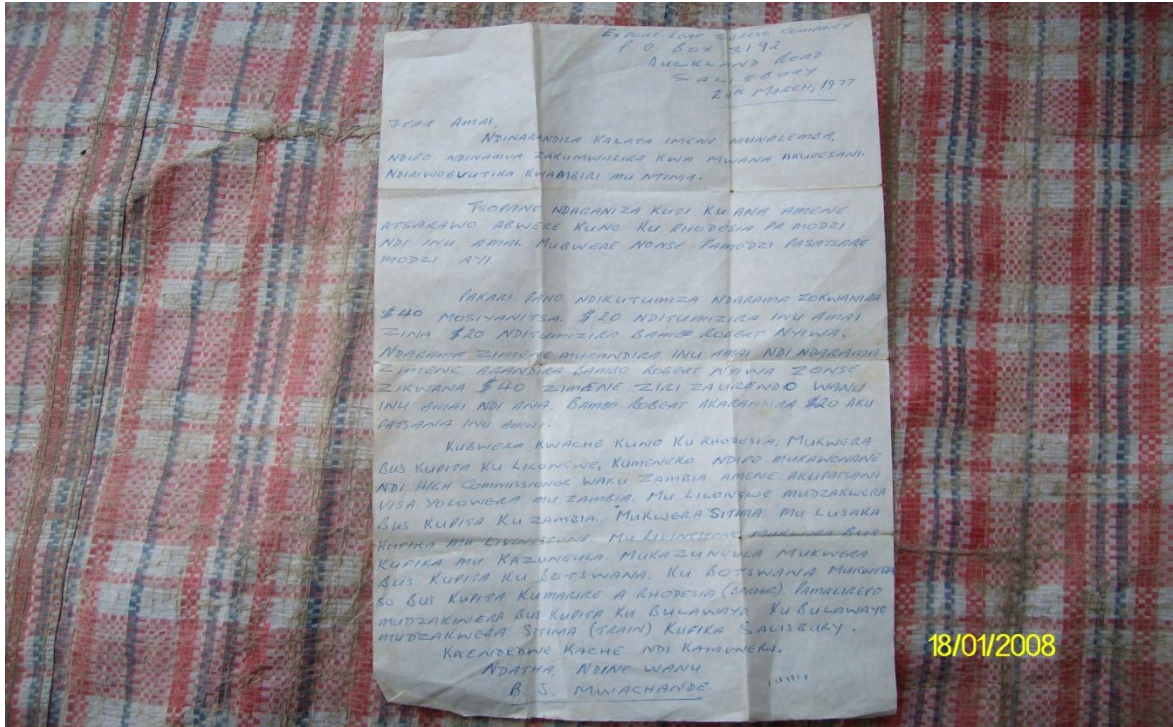 EXPORT LEAF TOBACCO COMPANY
P. O. BOX 3192
AUCKLAND ROAD
SALISBURY
2ND MARCH, 1977
DEAR AMAI,
NDINARANDILA KALATA IMENE MUNALEMBA,
NDIPO NDINAMVA ZAKUMWALIRA KWA MWANA
NDIRIWOBVUTIKA KWAMBIRI MU NTIMA.
TSOPANO NDAGANIZA KUTI KU ANA AMENE
ATSARAWO ABWERE KUNO KU RHODESIA PA MODZI
NDI INU AMAI. MUBWERE NONSE PAMODZI PASATSARE
MODZI AYI
PAKARI PANO NDIKUTUMIZA NDARAMA ZOKWANIRA
$40 MOSIYANITSA. $20 NDITUMIZIRA INU AMAI
ZINA $20 NDITUMIZIRA BAMBO ROBERT NYIWA.
NDARAMA ZIMENE MURANDIRA INU AMAI NDI NDARAMA
ZIMENE ARANDIRA BAMBO ROBERT NYIWA ZONSE
ZIKWANA $40 ZIMENE ZIRI ZAURENDO WANU
INU AMAI NDI ANA. BAMBO ROBERT AKARANDIRA $20 AKU
PATSANA INU AMAI.
KUBWERA KWACHE KUNO KU RHODESIA, MUKWERA
BUS KUPITA KU LILONGWE, KUMENEKO NDIPO MUKAWONANE
NDI HIGH COMMISSIONER WAKU ZAMBIA AMENE AKUPATSANI
VISA YOLOWERA MU ZAMBIA. MU LILONGWE MUDZAKWERA
BUS KUPITA KU ZAMBIA. MUKWERA SITIMA MU LUSAKA
KUFIKA MU LIVINGSTONE. MU LIVINGSTONE MUKWERA BUS
KUFIKA MU KAZUNGULA. MUKAZUNGULA MUKWERA
BUS KUPITA KU BOTSWANA. KU BOTSWANA MUKWERA
SO BUS KUPITA KUMARIRE A RHODESIA (BORDER). PAMALIREPO
MUDZAKWERA BUS KUPITA KU BULAWAYO. KU BULAWAYO
MUDZAKWERA SITIMA (TRAIN) KUFIKA SALISBURY.
KAENDEDWE KACHE NDI KAMENEKA.
NDATHA, NDINE WANU
B. S. MWACHANDE
18/01/2008